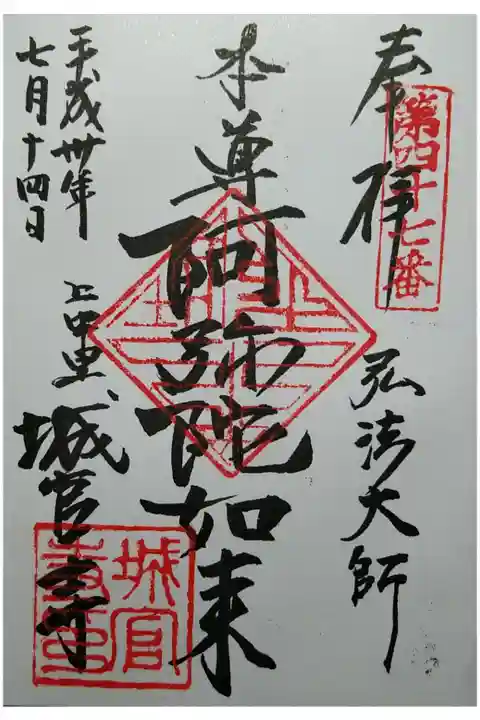 奉拝
第四十七番
弘法大師
本尊
阿弥陀如来
上中里
城官寺
城官寺印
平成卅年
七月十四日